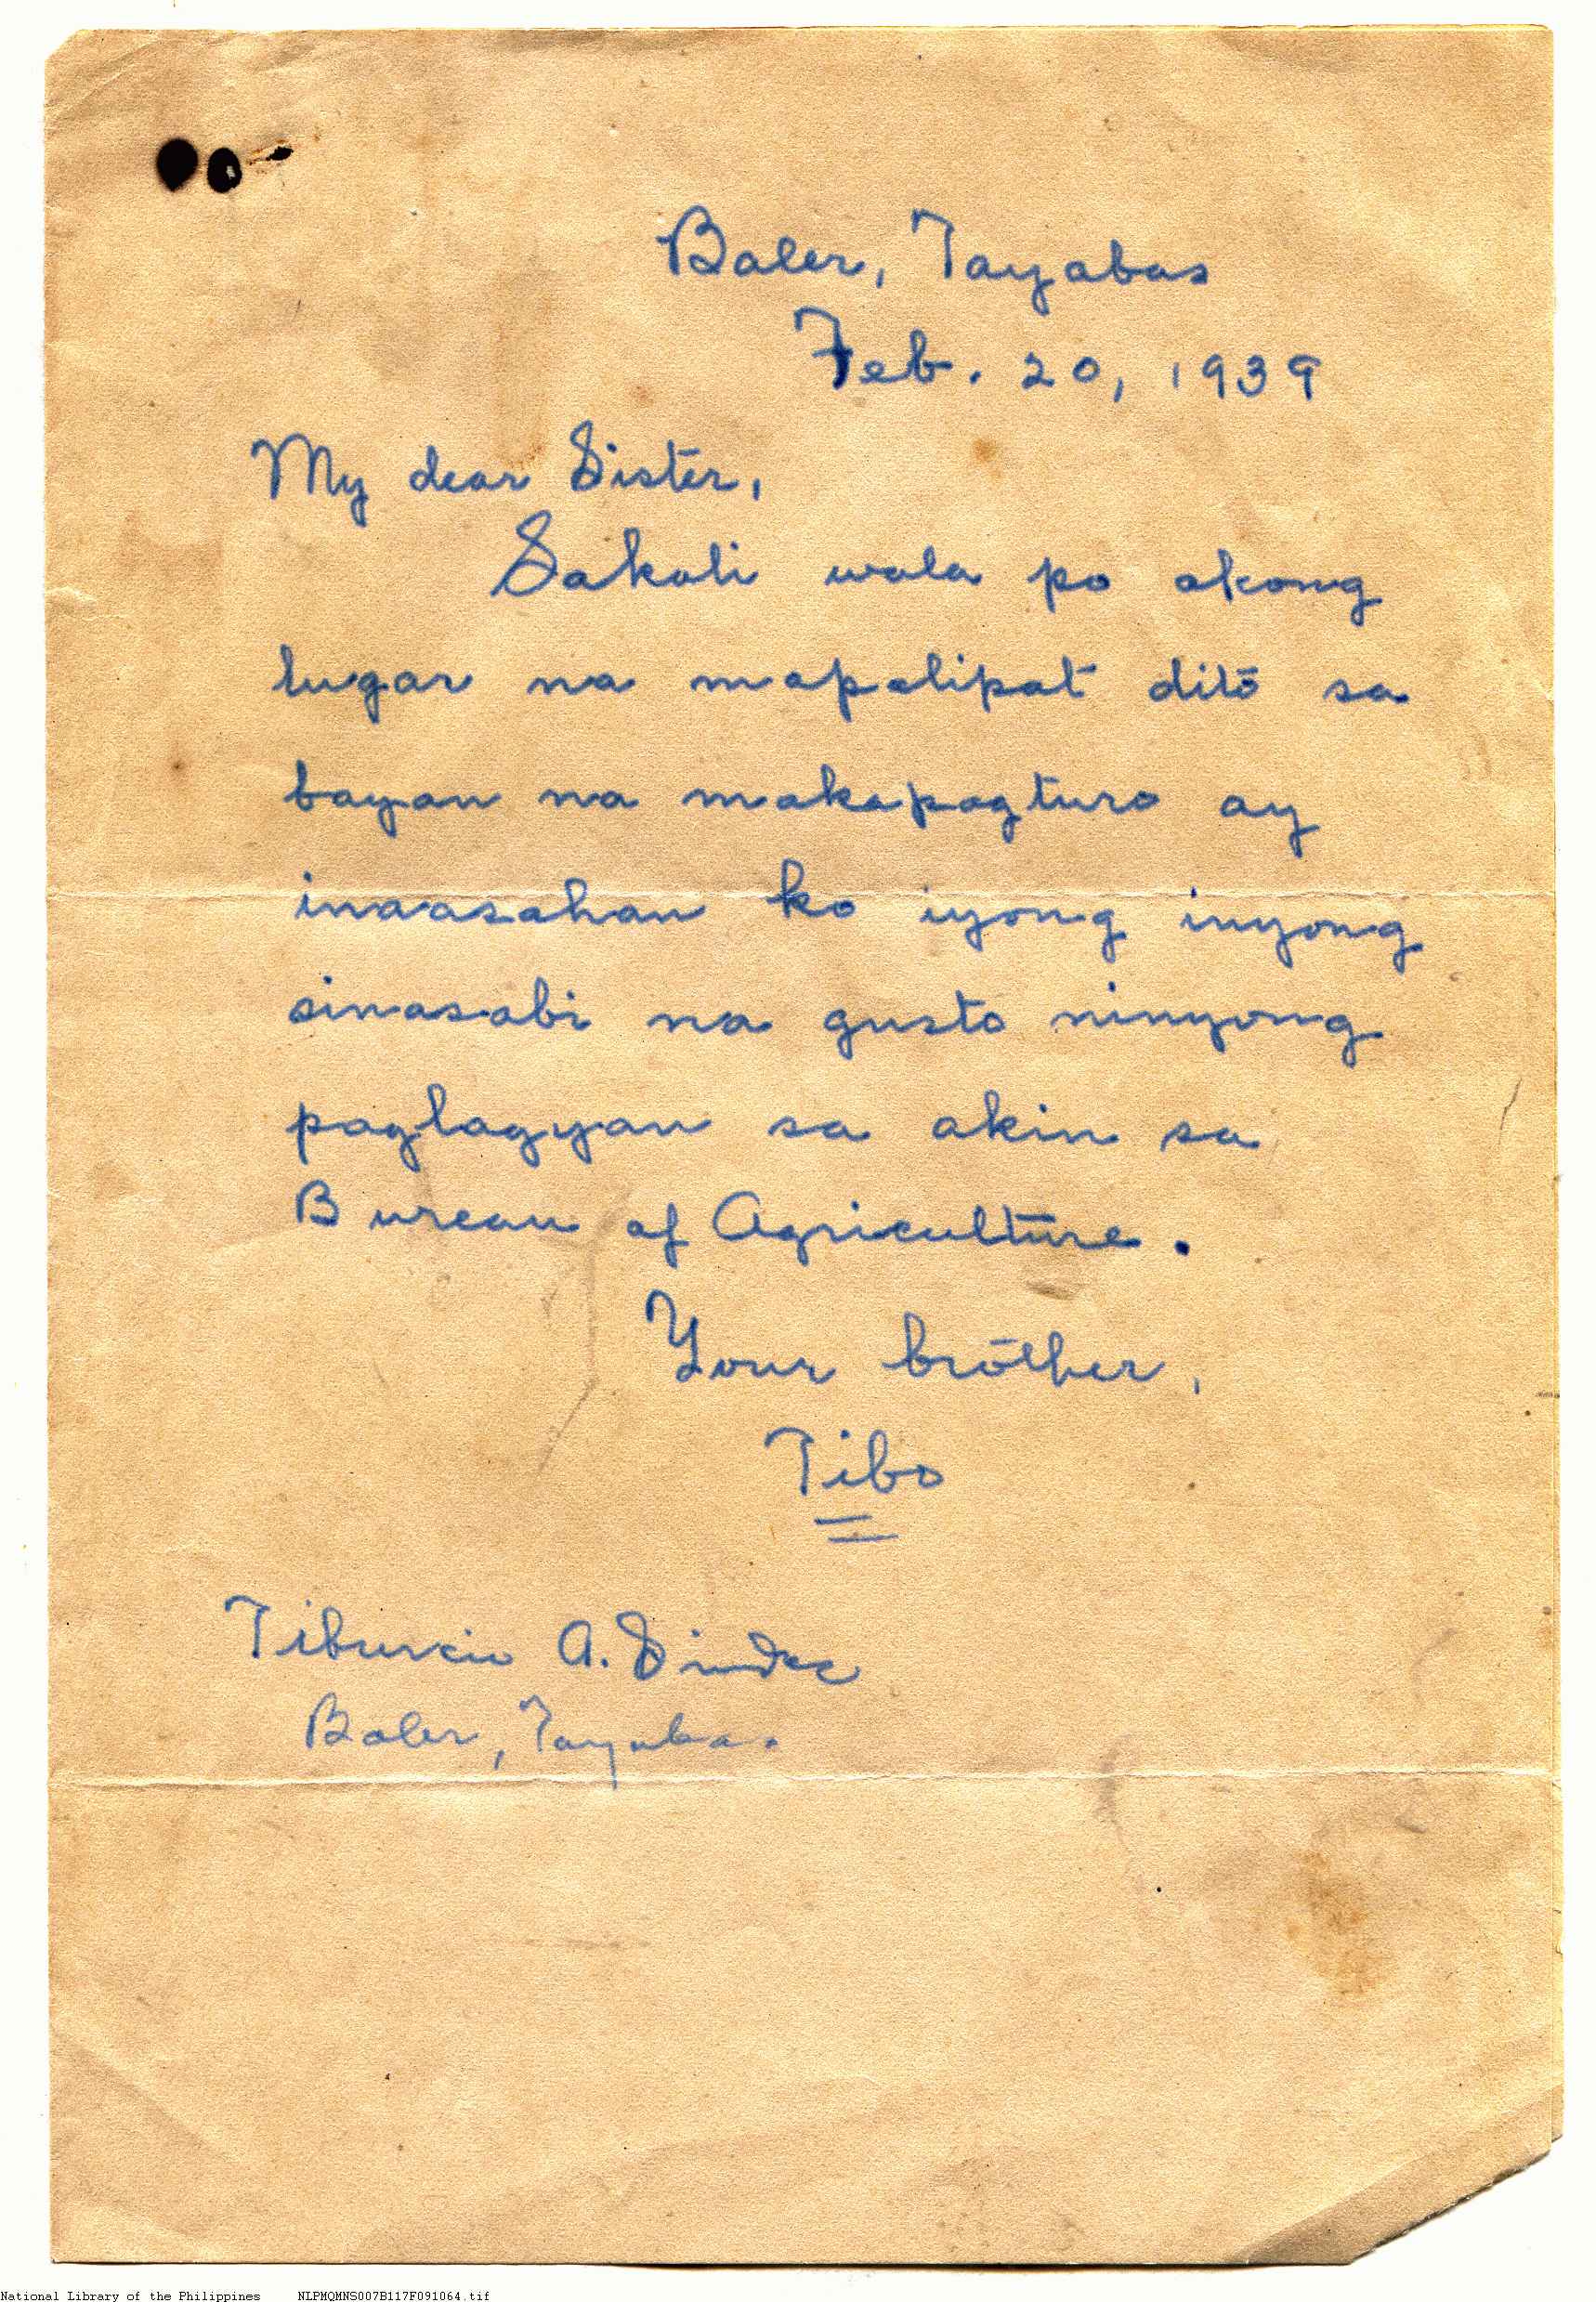 Baler, Tayabas
Feb. 20, 1939
My dear Sister,
Sakali wala po akong
lugar na mapalipat dito sa
bayan na makapagturo ay
inaasahan ko iyong inyong
sinasabi na gusto ninyong
paglagyan sa akin sa
Bureau of Agriculture.
Your brother,
Tibo
Tiburcio A.
Baler, Tayabas
National Library of the Philippines NLPMQMNS007B117F091064.tif